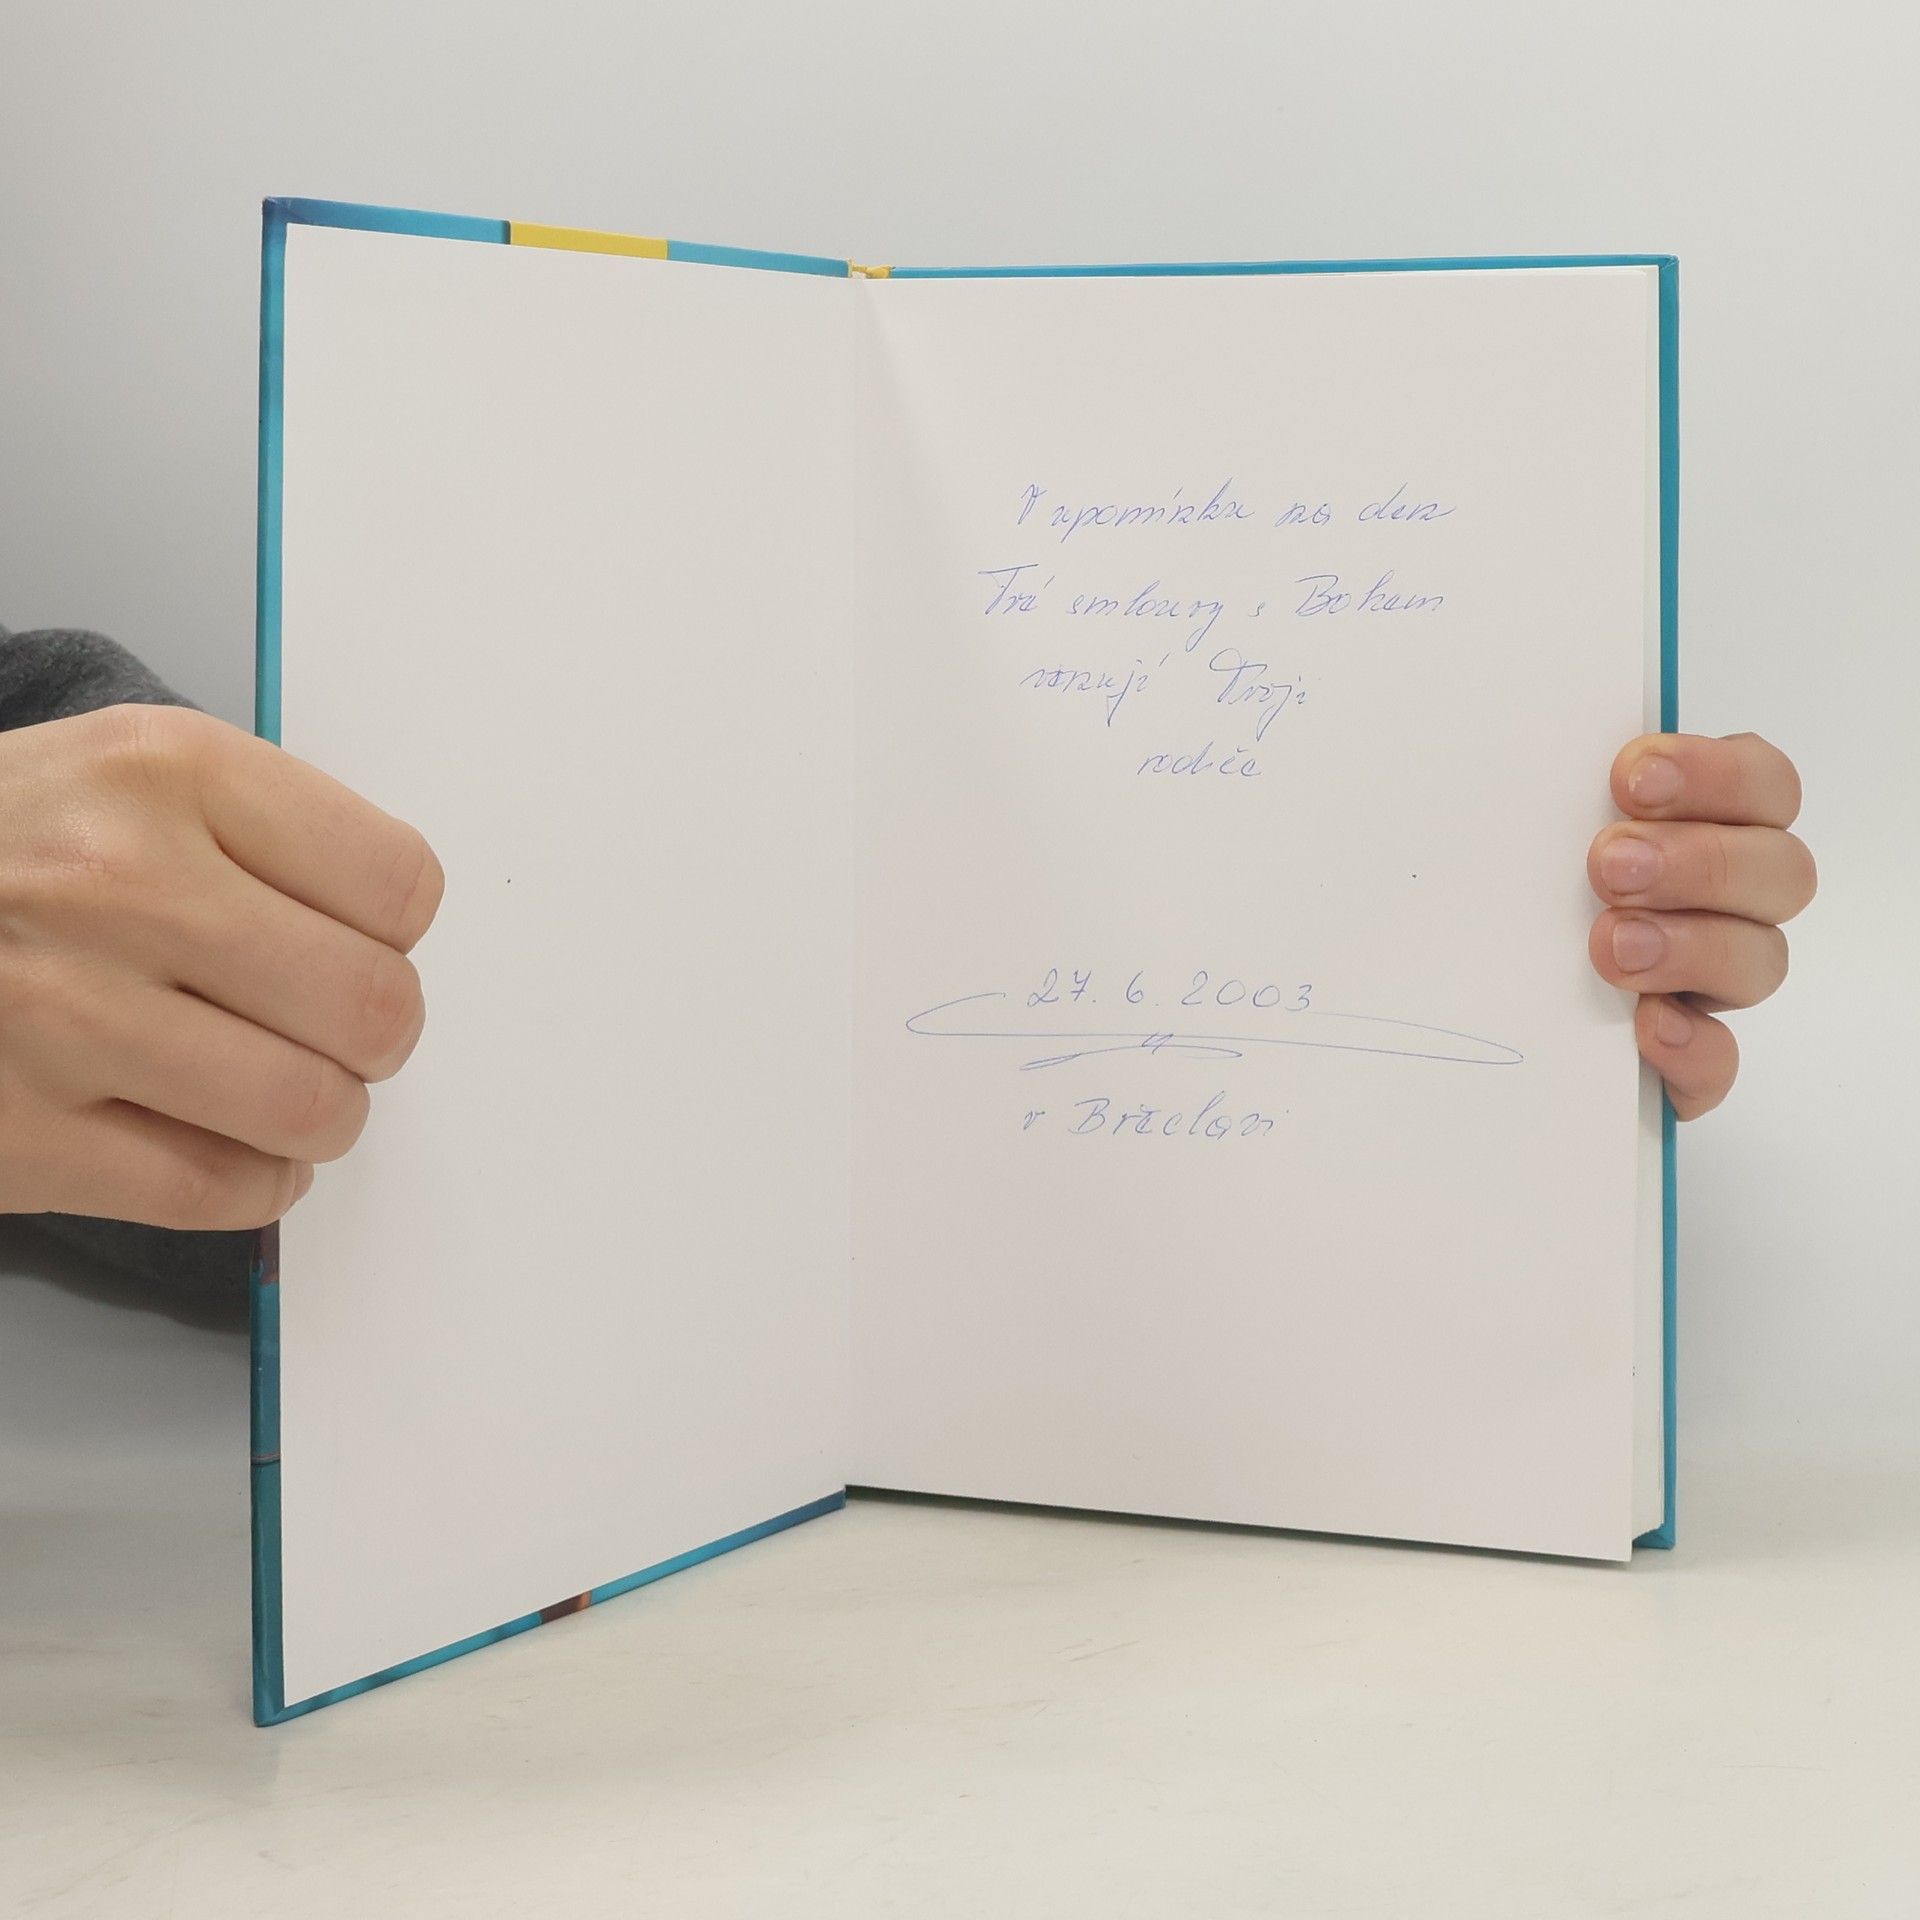 V upomínku na den
Tvé smlouvy s Bohem
věnují Tvoji
rodiče
27. 6. 2003
v Břeclavi